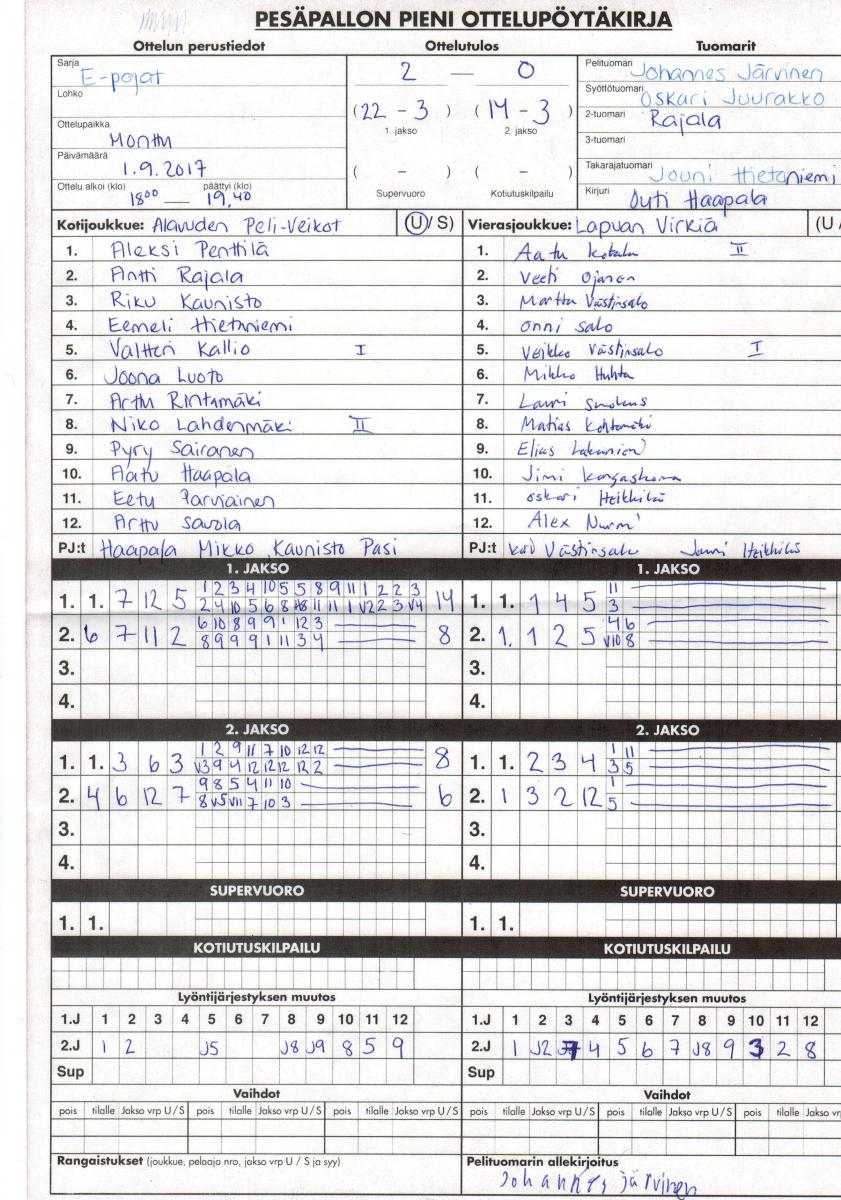 PESÄPALLON PIENI OTTELUPÖYTÄKIRJA
Ottelun perustiedot Ottelutulos Tuomarit
Sarja E-pojat
Lohko
Ottelupaikka Monttu
Päivämäärä 1.9.2017
Ottelu alkoi (klo) 18 00 — päättyi (klo) 19,40
2 — 0
(22 - 3) (14 - 3)
1. jakso 2. jakso
( - ) ( - )
Supervuoro Kotiutuskilpailu
Pelituomari Johannes Järvinen
Syöttötuomari Oskari Juurakko
2-tuomari Rajala
3-tuomari
Takarajatuomari Jouni Hietaniemi
Kirjuri Outi Haapala
Kotijoukkue: Alavuden Peli-Veikot (U/S)
1. Aleksi Penttilä
2. Antti Rajala
3. Riku Kaunisto
4. Eemeli Hietaniemi
5. Valtteri Kallio I
6. Joona Luoto
7. Arttu Rintamäki
8. Niko Lahdenmäki II
9. Pyry Sairanen
10. Aatu Haapala
11. Eetu Parviainen
12. Arttu Savola
PJ:t Haapala Mikko, Kaunisto Pasi
Vierasjoukkue: Lapuan Virkiä (U/
1. Aatu II
2. Veeti Ojanen
3. Martta Västinsalo
4. Onni Salo
5. Veikko Västinsalo I
6. Mikko Huhta
7. Lauri
8. Matias
9. Elias
10. Jimi
11. Oskari Heikkilä
12. Alex Nurmi
PJ:t Västinsalo Jouni Heikkilä
1. JAKSO
1. 1. 7 12 5
1 2 3 4 10 5 5 8 9 11 1 2 2 3
14
2. 6 7 11 2
6 10 8 9 9 1 12 3
8 9 9 9 1 11 3 4
8
3.
4.
1. JAKSO
1. 1. 1 4 5
11
3
2. 1. 1 2 5
4 6
V10 8
3.
4.
2. JAKSO
1. 1. 3 6 3
1 2 9 11 7 10 12 12
V3 9 4 12 12 12 12 2
8
2. 4 6 12 7
9 8 5 4 11 10
8 V5 V11 7 10 3
6
3.
4.
2. JAKSO
1. 1. 2 3 4
1 11
3 5
2. 1 3 2 12
1
5
3.
4.
SUPERVUORO
1. 1.
SUPERVUORO
1. 1.
KOTIUTUSKILPAILU
KOTIUTUSKILPAILU
Lyöntijärjestyksen muutos
1.J 1 2 3 4 5 6 7 8 9 10 11 12
2.J 1 2 J5 J8 J9 8 5 9
Sup
Vaihdot
pois tilalle Jakso vrp U/S pois tilalle Jakso vrp U/S pois tilalle Jakso vrp U/S
Rangaistukset (joukkue, pelaaja nro, jakso vrp U / S ja syy)
Lyöntijärjestyksen muutos
1.J 1 2 3 4 5 6 7 8 9 10 11 12
2.J 1 J2 7 4 5 6 7 J8 9 3 2 8
Sup
Vaihdot
pois tilalle Jakso vrp U/S pois tilalle Jakso vrp U/S pois tilalle
Pelituomarin allekirjoitus
Johannes Järvinen